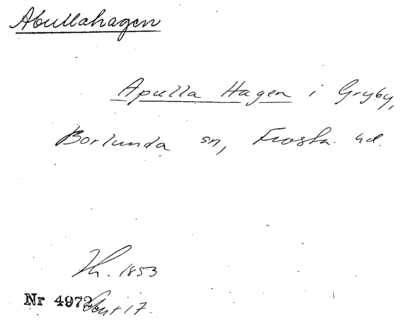 Abullahagen
Apulla Hagen i Gryby,
Borlunda sn, Frosta hd.
1853
Nr 4972
17.